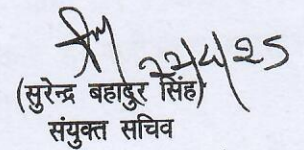 22/4/25
(सुरेन्द्र बहादुर सिंह)
संयुक्त सचिव